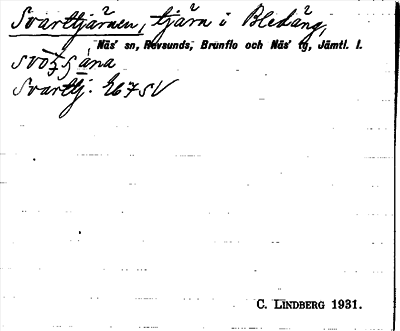 Svarttjärnen, tjärn i Bledäng,
Näs' sn, Revsunds, Brunflo och Näs' tg, Jämtl. l.
Svarttj. Eb 7 SV
C. LINDBERG 1931.